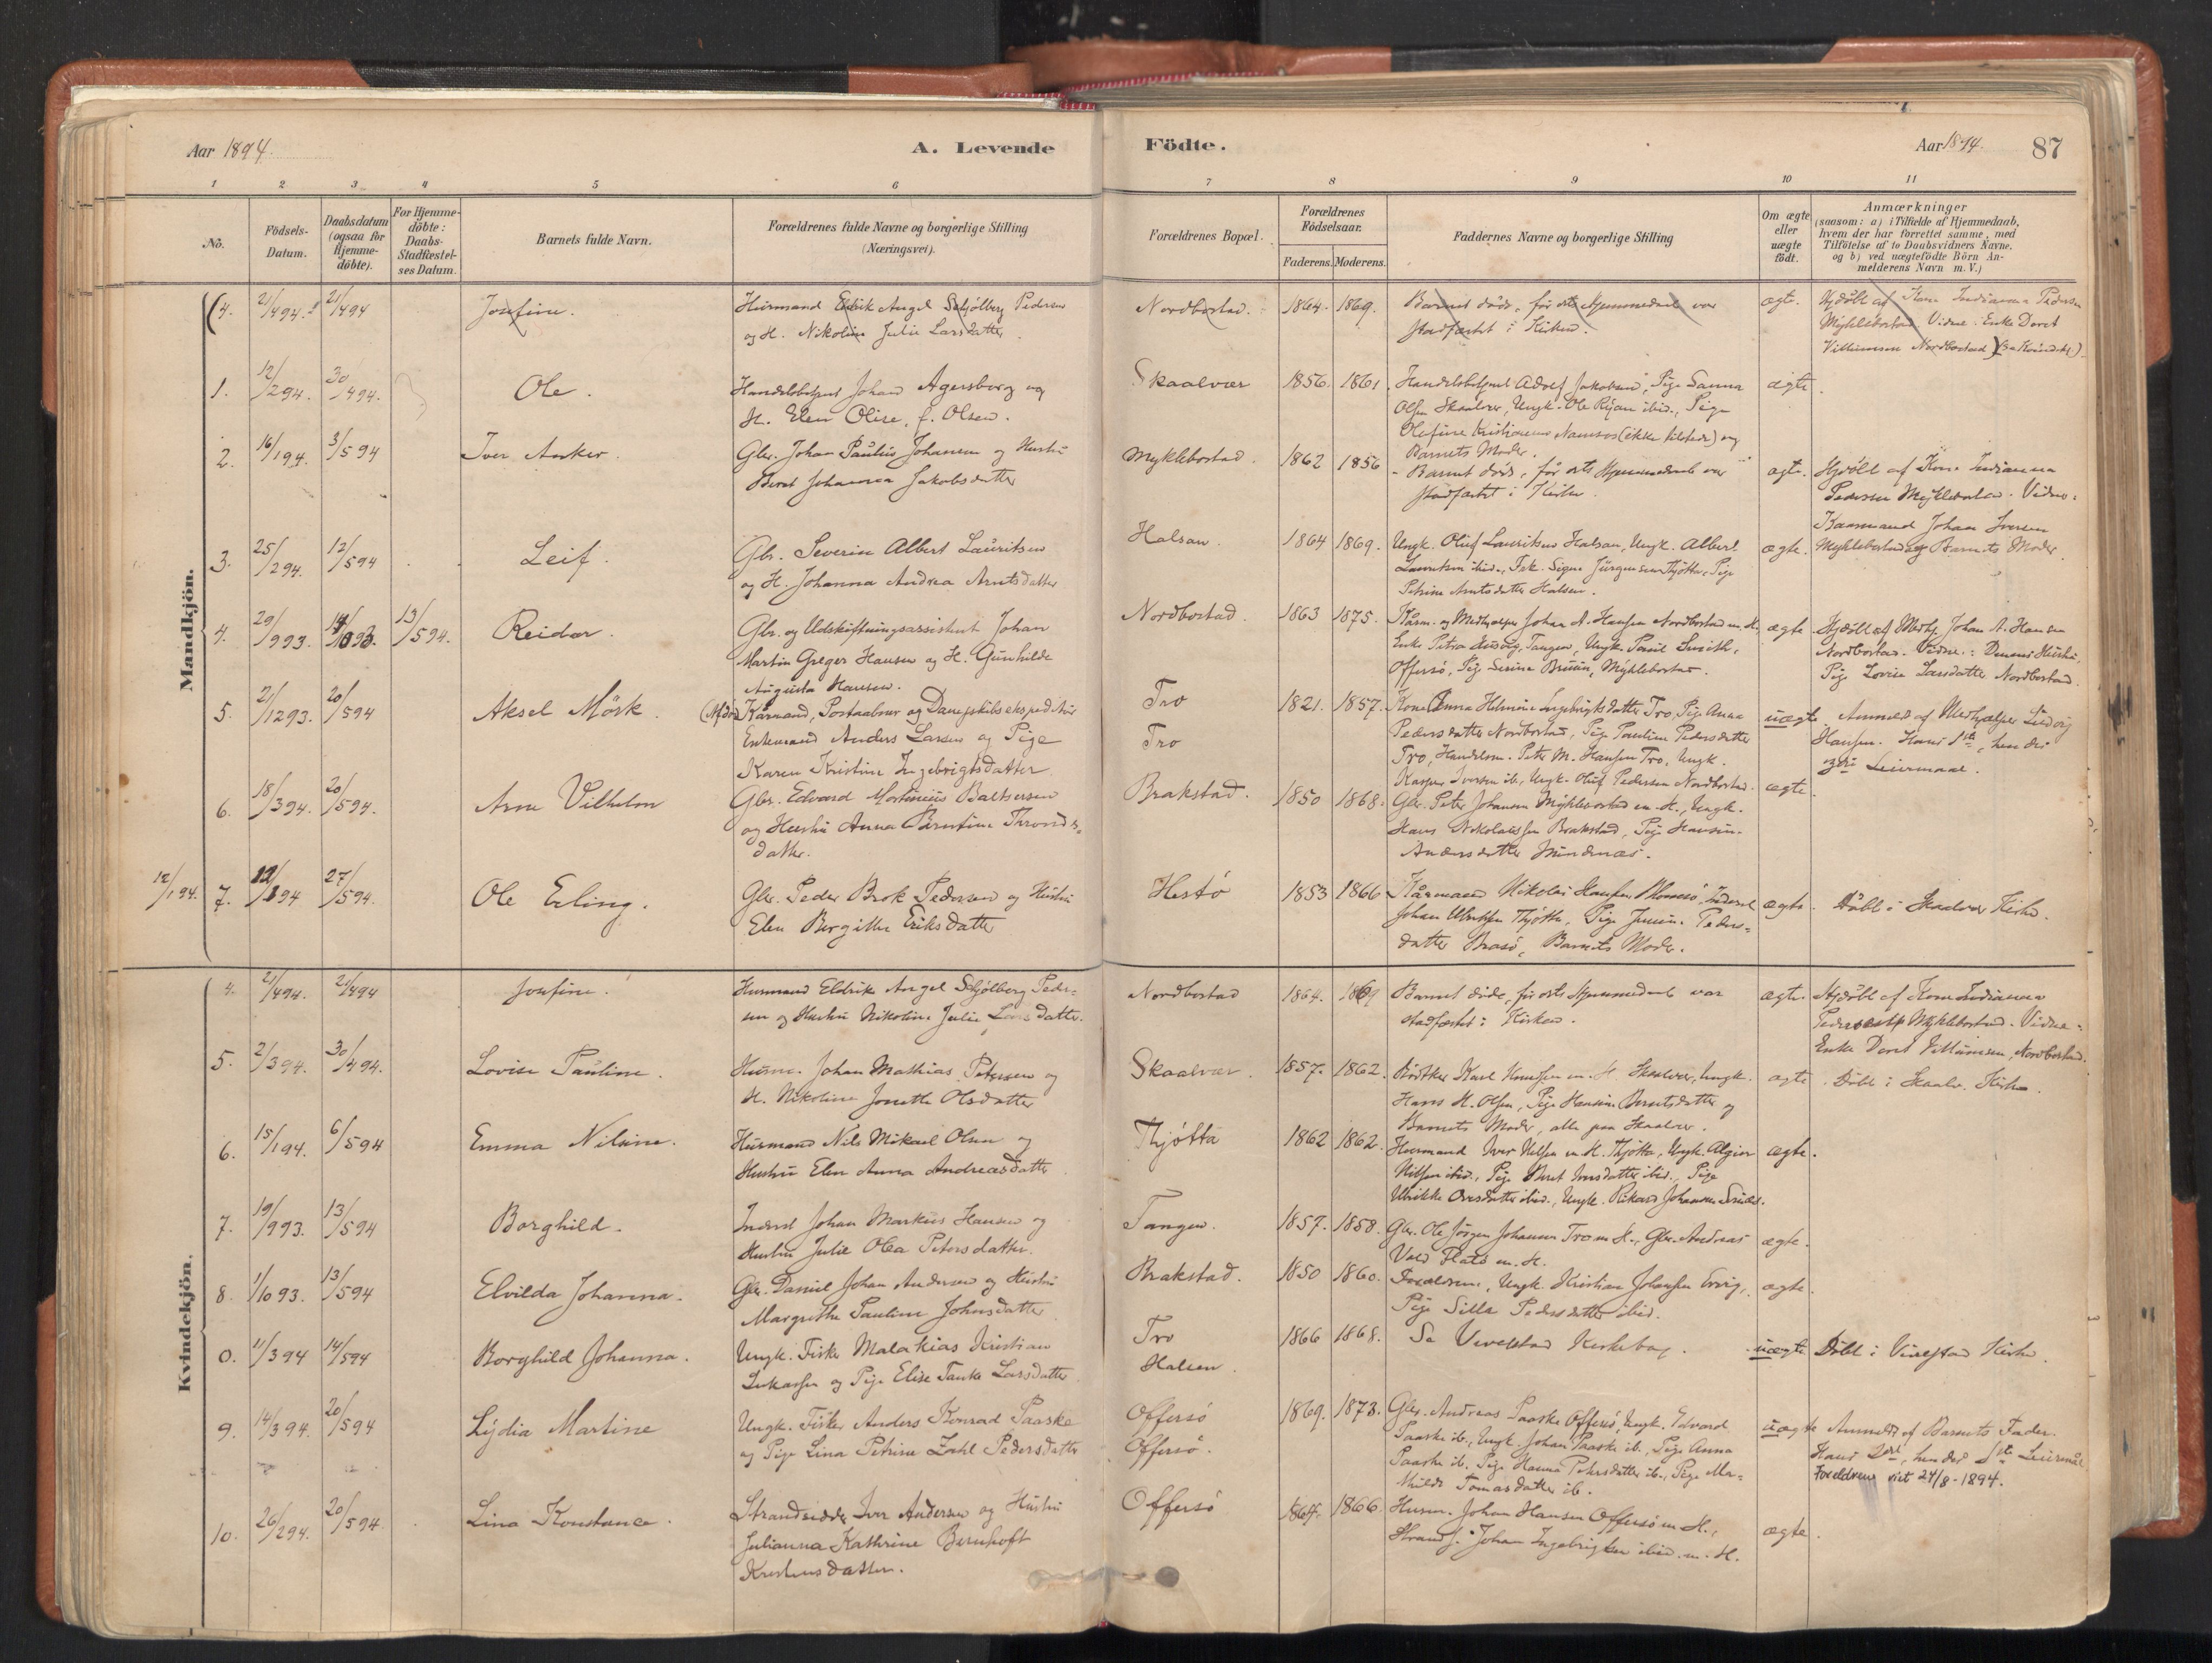 Aar 1894.
A. Levende
Födte.
Aar 1894.
87
1 2 3 4 5 6 7 8 9 10 11
No.
Födsels-
Datum.
Daabsdatum
(ogsaa for
Hjemme-
döbte).
For Hjemme-
döbte:
Daabs-
Stadfæstel-
ses Datum.
Barnets fulde Navn.
Forældrenes fulde Navne og borgerlige Stilling
(Næringsvei).
Forældrenes Bopæl.
Forældrenes
Födselsaar.
Faderens. Moderens.
Faddernes Navne og borgerlige Stilling
Om ægte
eller
uægte
födt.
Anmærkninger
(saasom: a) i Tilfælde af Hjemmedaab,
hvem der har forrettet samme, med
Tilföielse af to Daabsvidners Navne,
og b) ved uægtefödte Börn An-
melderens Navn m. V.)
Mandkjön.
(4. 21/494. 21/494 Josefine.
Husmand Eldrik Angel Schjølberg Pedersen
og H. Nikoline Julie Larsdatter.
Nordbostad. 1864. 1869.
Barnet døde, før dets Hjemmedaab var
stadfæstet i Kirken.
ægte.
Hjdöbt af Kone Indianna Pedersen
Myklebostad. Vidne: Enke Doret
Villumsen Nordbostad)
1. 12/294. 30/494. Ole.
Handelsbetjent Johan Agersborg og
H. Elen Olise, f. Olsen.
Skaalvær 1856. 1861.
Handelsbetjent Adolf Jakobsen, Pige Sanna
Olsen Skaalvær, Ungk. Ole Rijan ibid., Pige
Olefine Kristiansen Namsos (ikke tilstede) og
Barnets Moder.
ægte.
2. 16/194. 3/594 Iver Anker.
Gbr. Johan Paulus Johansen og Hustru
Beret Johanna Jakobsdatter
Myklebostad. 1862 1856
Barnet døde, før dets Hjemmedaab var
stadfæstet i Kirken.
ægte.
Hjdöbt af Kone Indianna
Pedersen Myklebostad. Vidner:
Kaarmand Johan Iversen
Myklebostad og Barnets Moder.
3. 25/294. 12/594 Leif.
Gbr. Severin Albert Lauritsen
og H. Johanna Andrea Arntsdatter
Halsan. 1864 1869.
Ungk. Oluf Lauritsen Halsan, Ungk. Albert
Lauritsen ibid., Frk. Signe Jürgensen Thjøtta, Pige
Petrine Arntsdatter Halsen.
ægte.
4. 29/993. 13/594. Reidar.
Gbr. og Udskiftningsassistent Johan
Martin Greger Hansen og H. Gunhilde
Augusta Hansen.
Nordbostad. 1863 1875.
Kårm. og Medhjælper Johan A. Hansen Nordbostad m. H.,
Enke Petra Tangen, Ungk. Smith,
Offersø, Pige Serine Bruun, Myklebostad.
ægte
Hjdöbt af Medhj. Johan A. Hansen
Nordbostad. Vidne: Dennes Hustru,
Pige Lovise Larsdatter Nordbostad.
5. 21/1293. 20/594 Aksel Mörk.
Kårmand, Postaabner og Dampskibsekspeditör
Enkemand Anders Larsen og Pige
Karen Kristine Ingebrigtsdatter
Tro
Tro
1821. 1857.
Kone Anna Helmine Ingebrigtsdatter Tro, Pige Anna
Pedersdatter Nordbostad, Pige Pauline Pedersdatter
Tro, Handelsm. Peter M. Hansen Tro, Ungk.
Kasper Iversen ib., Ungk. Oluf Pedersen Nordbostad.
uægte.
Anmeldt af Medhjælper Ludvig
Hansen. Hans 1ste, hendes
3die Leiermaal.
6. 18/394. 20/594. Arne Vilhelm
Gbr. Edvard Mortinius Baltsersen
og Hustru Anna Berntine Thronds-
datter.
Brakstad. 1850 1868.
Gbr. Peter Johansen Myklebostad m. H., Ungk.
Hans Nikolaisen Brakstad, Pige Hansine
Andersdatter
ægte.
12/194. 7. 12/194 27/594. Ole Erling.
Gbr. Peder Brok Pedersen og Hustru
Elen Bergitte Eriksdatter
Hestø 1853 1866
Kårmand Nikolai Hansen Inderst
Johan Thjøtta, Pige Jensine Peders-
datter Brasø, Barnets Moder.
ægte.
Döbt i Skaalvær Kirke.
Kvindekjön.
4. 21/494. 21/494 Josefine.
Husmand Eldrik Angel Schjølberg Peder-
sen og Hustru Nikoline Julie Larsdatter.
Nordbostad 1864. 1869
Barnet døde, før dets Hjemmedaab var
stadfæstet i Kirken.
ægte.
Hjdöbt af Kone Indianna
Pedersen Myklebostad. Vidne:
Enke Doret Villumsen, Nordbostad.
5. 2/394. 30/494. Lovise Pauline.
Husm. Johan Mathias Petersen og
H. Nikoline Jonette Olsdatter
Skaalvær. 1857. 1862.
Bödtker Karl Knutsen m. H. Skaalvær, Ungk.
Hans H. Olsen, Pige Hansine Berntsdatter og
Barnets Moder, alle paa Skaalvær.
ægte.
Döbt i Skaalv. Kirke.
6. 15/194. 6/594 Emma Nilsine.
Husmand Nils Mikael Olsen og
Hustru Elen Anna Andreasdatter
Thjøtta 1862 1862.
Husmand Iver Nilsen m. H. Thjøtta, Ungk. Algier
Nilsen ibid., Pige Beret Iversdatter ibid., Pige
Ulrikke ibid., Ungk. Rikard Johansen
ægte.
7. 19/993. 13/594 Borghild.
Inderst Johan Markus Hansen og
Hustru Julie Olea Petersdatter.
Tangen. 1857. 1858.
Gbr. Ole Jörgen Johansen Tro m. H., Gbr. Andreas
m. H.
ægte.
8. 1/1093. 13/594 Elvilda Johanna.
Gbr. Daniel Johan Andersen og Hustru
Margrethe Pauline Johnsdatter
Brakstad. 1850 1860.
Forældrene, Ungk. Kristian Johansen
Pige Silla Pedersdatter ibid.
ægte.
0. 11/394 14/594 Borghild Johanna.
Ungk. Fisker Malakias Kristian
Lukassen og Pige Elise Tanke Larsdatter
Tro
Halsen.
1866 1868.
Se Vevelstad Kirkebog.
uægte
Döbt i Vevelstad Kirke.
9. 14/394. 20/594 Lydia Martine
Ungk. Fisker Anders Konrad Paaske
og Pige Lina Petrine Zahl Pedersdatter
Offersö
Offersö.
1869. 1873.
Gbr. Andreas Paaske Offersö, Ungk. Edvard
Paaske ib., Ungk. Johan Paaske ib., Pige Anna
Paaske ib. Pige Hanna Petersdatter ib., Pige Ma-
thilde Tomasdatter ib.
uægte
Anmeldt af Barnets Fader.
Hans 2det, hendes 1ste Leiermål
Forældrene viet 24/8-1894.
10. 26/294. 20/594. Lina Konstance.
Strandsidder Iver Andersen og Hustru
Julianna Kathrine Bernhoft
Kristensdatter.
Offersö 1866.
Husm. Johan Hansen Offersö m. H.,
Strands. Johan Ingebrigtsen ibid. m. H.
ægte.